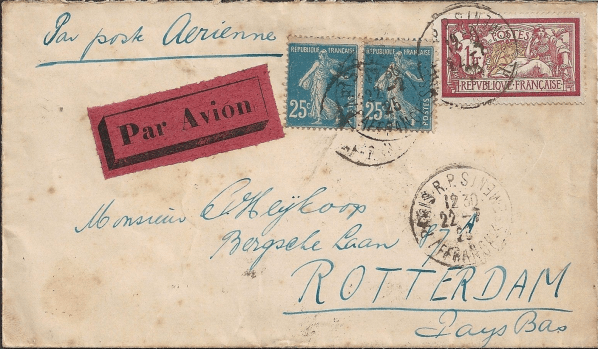 Par poste Aerienne
REPUBLIQUE FRANÇAISE
REPUBLIQUE FRANÇAISE
25c
25c
POSTES
POSTES
1F
REPUBLIQUE·FRANÇAISE
Par Avion
PARIS R.P. SERVICE
12 30
22
25
AFFRANCH
Monsieur C. Heijkoop
Bergsche Laan 87
ROTTERDAM
Pays Bas